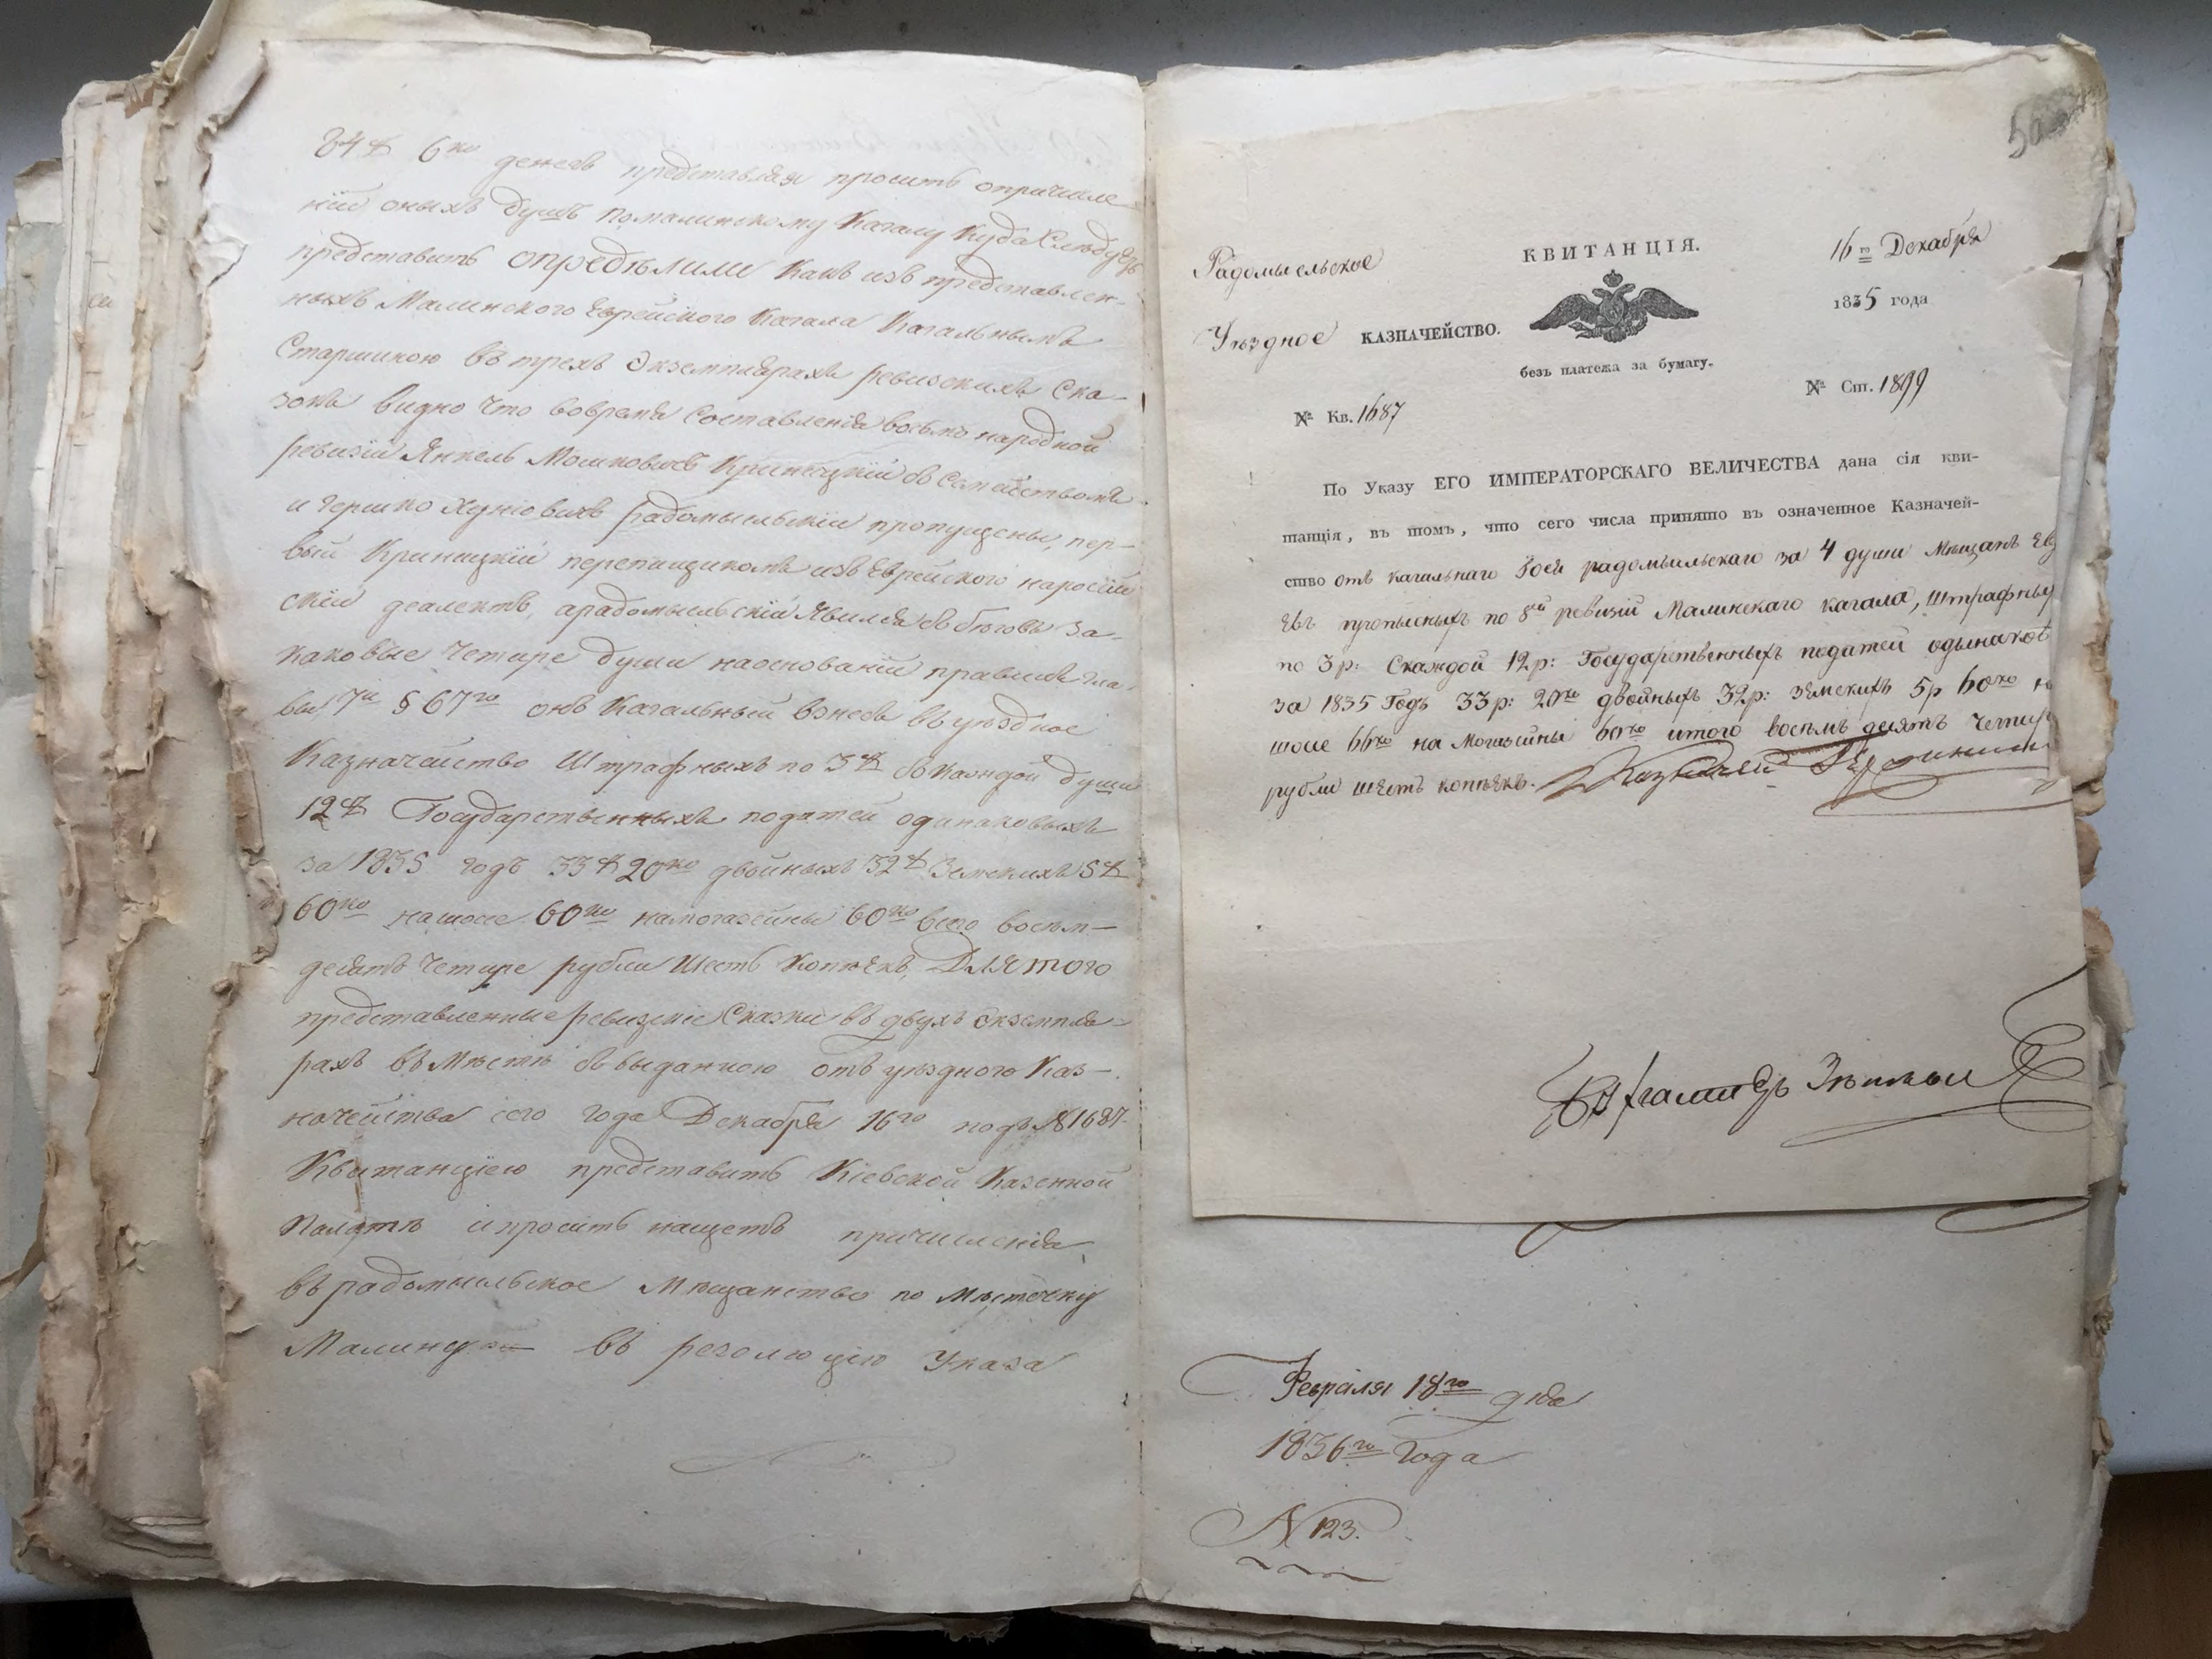 84 р 6 ко денегъ представляя просить опричисле
нии оныхъ душъ помалинскому Кагалу куда слѣдуетъ
представить опредѣлили Какъ изъ представлен-
ныхъ Малинского Еврейского Кагала Кагальнымъ
Старшиною въ трехъ Экземплярахъ ревизскихъ Ска-
зокъ видно что вовремя Составленія восьмой народной
ревизіи Янкель Мошковичъ Криницкій съ Семействомъ
и Гершко Радомысльскій пропущены, пер-
вый Криницкій перепищикомъ изъ Еврейского наросій
скій деалектъ, арадомысльскій явился съ бѣговъ за
каковые четыре души наоснованіи правилъ гла-
вы 7й § 67го онъ Кагальный взнесъ въ уѣздное
Казначейство Штрафныхъ по 3 р съ каждой души
12 р Государственныхъ податей одинаковыхъ
за 1835 годъ 33 р 20 ко двойныхъ 32 р Земскихъ 5 р
60 ко нашосе 60 ко намогазейны 60 ко всего восем-
десятъ четыре рубли Шесть Копѣекъ, Для того
представленные ревизскіе Сказки въ двухъ Экземпля-
рахъ въмѣстѣ съ выданною отъ уѣздного Каз-
начейства сего года Декабря 16го подъ № 1687.
Квитанціею представить Кіевской Казенной
Палатѣ ипросить нащетъ причисленія
въ радомысльское Мѣщанство по мѣстечку
въ резолюцію Указа
50
КВИТАНЦІЯ.
16го Декабря
Радомысльское
1835 года
Уѣздное КАЗНАЧЕЙСТВО.
безъ платежа за бумагу.
№ Ст. 1899
№ Кв. 1687
По Указу ЕГО ИМПЕРАТОРСКАГО ВЕЛИЧЕСТВА дана сія кви-
танція, въ томъ, что сего числа принято въ означенное Казначей-
ство отъ кагальнаго радомысльскаго за 4 души Мѣщанъ Евр
Евъ прописныхъ по 8й ревизіи Малинскаго кагала, Штрафныхъ
по 3 р: Скаждой 12 р: Государственныхъ податей одынаков
за 1835 Годъ 33 р: 20 ко двойныхъ 32 р: земскихъ 5 р 60 ко на
шосе 66 ко на Могазейны 60 ко итого восемъ десятъ четыр
рубли шесть копѣекъ. Казначей
Февраля 18го дня
1836го Года
N 123.